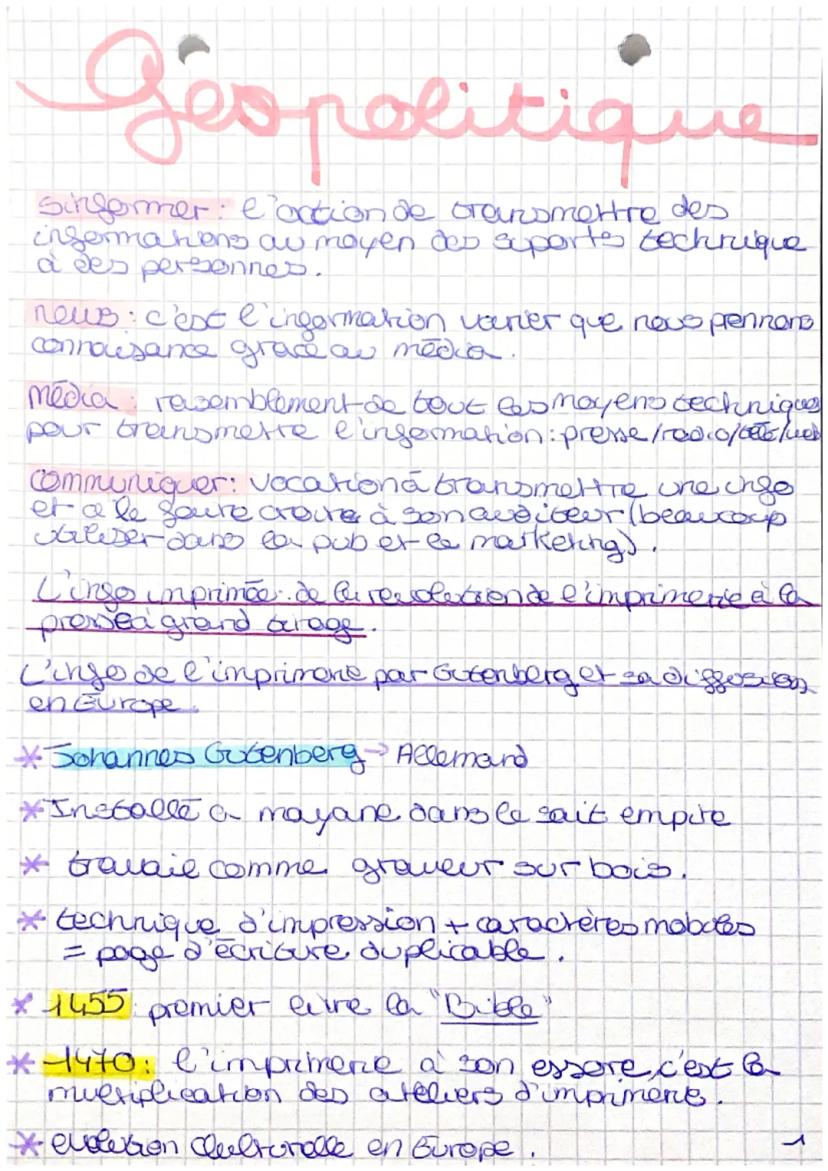 Géopolitique
s'informer : l'action de transmettre des
informations au moyen des suports technique
à des personnes.
news : c'est l'information varier que nous prennons
connaisance grace au média.
média : rasemblement de tout les moyens technique
pour transmettre l'information : presse/radio/télé/web
communiquer : vocation à transmettre une info
et à le faire croire à son auditeur (beaucoup
utiliser dans la pub et le marketing).
L'info imprimée : de la revolution de l'imprimerie à la
presse à grand tirage.
L'info de l'imprimerie par Gutenberg et sa diffusion
en Europe.
* Johannes Gutenberg → Allemand
* Installé à mayane dans le sait empire
* travaie comme graveur sur bois.
* technique d'impression + caractères mobiles
= page d'écriture duplicable.
* 1455 : premier livre la "Bible"
* 1470 : l'imprimerie à son essore, c'est la
multiplication des ateliers d'imprimerie.
* evolution culturelle en Europe.
1